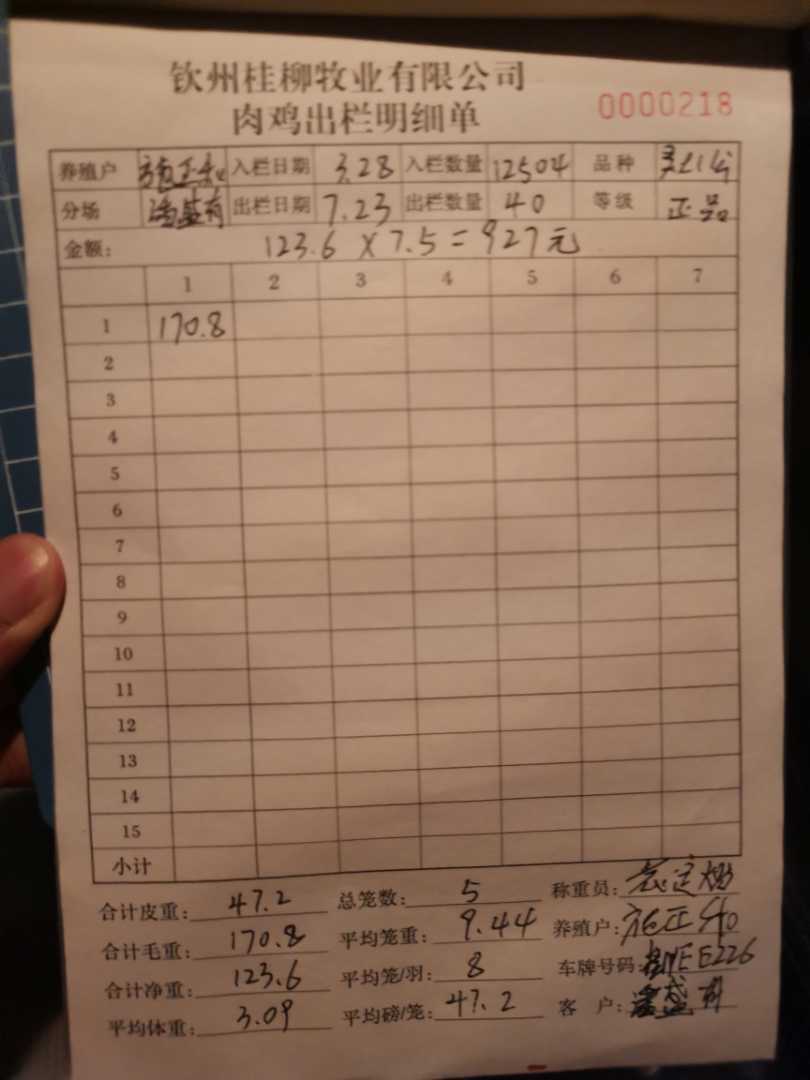 钦州桂柳牧业有限公司
肉鸡出栏明细单
0000218
养殖户 施正和 入栏日期 3.28 入栏数量 12504 品种
分场 出栏日期 7.23 出栏数量 40 等级 正品
金额: 123.6 X 7.5 = 927元
1 2 3 4 5 6 7
1 170.8
2
3
4
5
6
7
8
9
10
11
12
13
14
15
小计
合计皮重: 47.2 总笼数: 5 称重员:
合计毛重: 170.8 平均笼重: 9.44 养殖户: 施正和
合计净重: 123.6 平均笼/羽: 8 车牌号码: E226
平均体重: 3.09 平均磅/笼: 47.2 客 户: